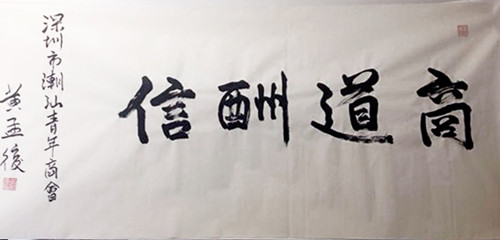 商道酬信
深圳市潮汕青年商會
黄孟複